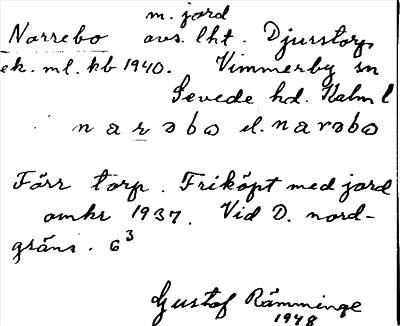 m. jord
Narrebo avs. lht. Djurstorp
ek. ml. kb 1940. Vimmerby sn
Sevede hd. Kalm l
narəbo el. narəbo
Förr torp. Friköpt med jord
omkr 1937. Vid D. nord-
gräns. 6³
Gustaf Rämminge
1948